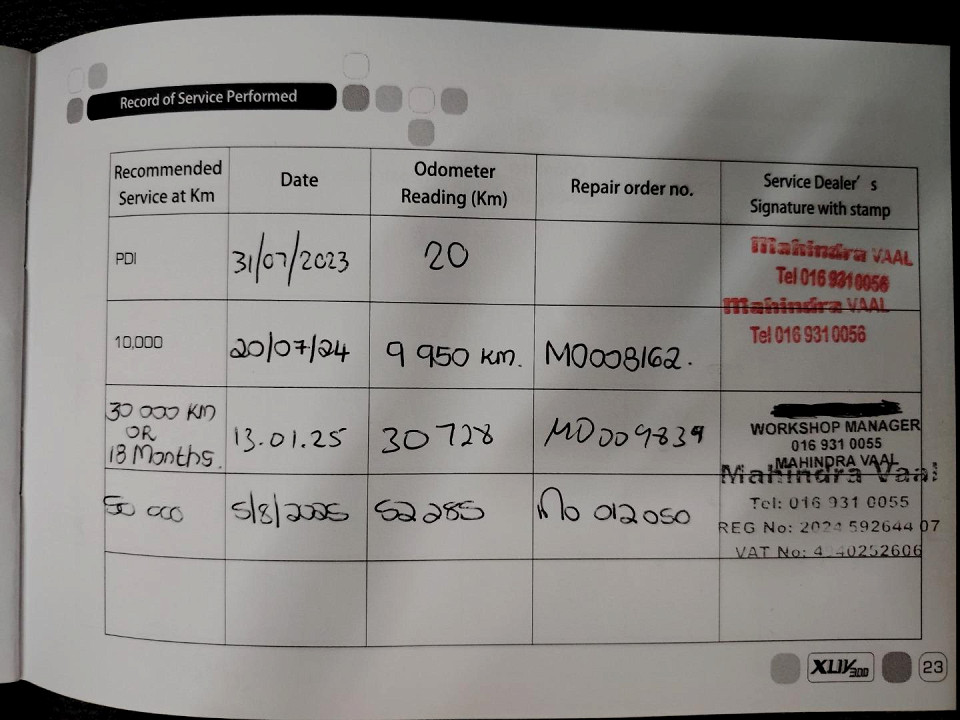 Record of Service Performed
Recommended Service at Km
Date
Odometer Reading (Km)
Repair order no.
Service Dealer's Signature with stamp
PDI
31/07/2023
20
Mahindra VAAL
Tel 016 931 0056
10,000
20/07/24
9 950 km.
M0008162.
Mahindra VAAL
Tel 016 931 0056
30 000 KM
OR
18 Months.
13.01.25
30 728
M0009839
WORKSHOP MANAGER
016 931 0055
MAHINDRA VAAL
50 000
5/8/2025
52285
Mo 012050
Mahindra Vaal
Tel: 016 931 0055
REG No: 592644 07
VAT No:
XUV300
23